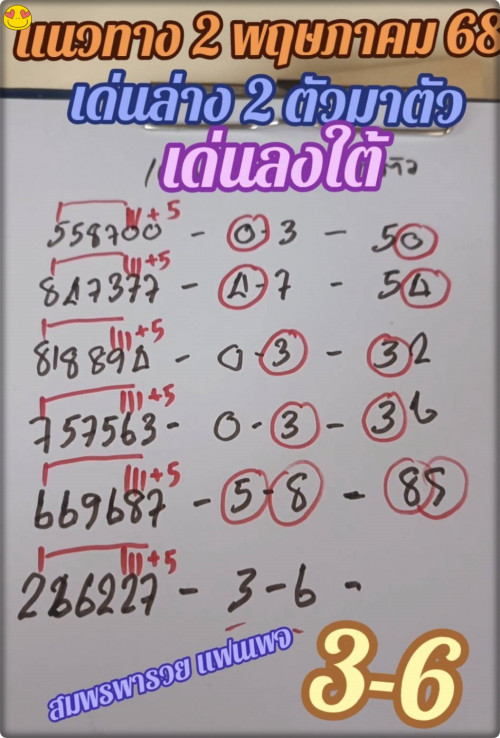 แนวทาง 2 พฤษภาคม 68
เด่นล่าง 2 ตัวมาตัว
เด่นลงใต้
558700 - 0-3 - 50
+5
847377 - 4-7 - 54
+5
818894 - 0-3 - 32
+5
757563 - 0-3 - 36
+5
669687 - 5-8 - 85
+5
286227 - 3-6 -
+5
สมพรพารวย แฟนเพจ
3-6